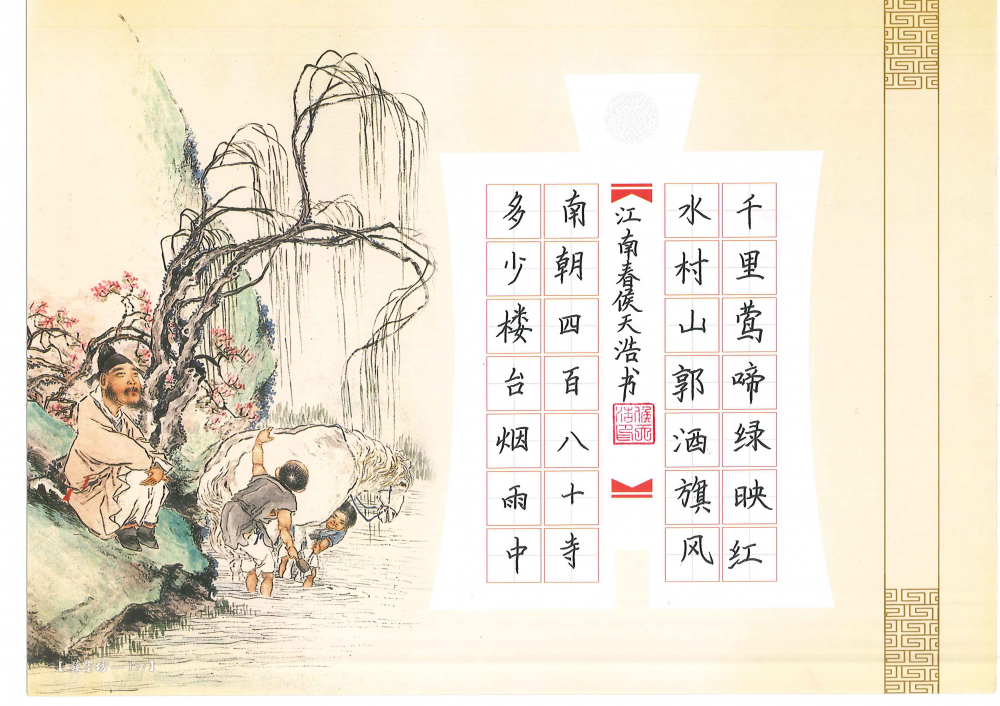 千里莺啼绿映红
水村山郭酒旗风
江南春侯天浩书
南朝四百八十寺
多少楼台烟雨中